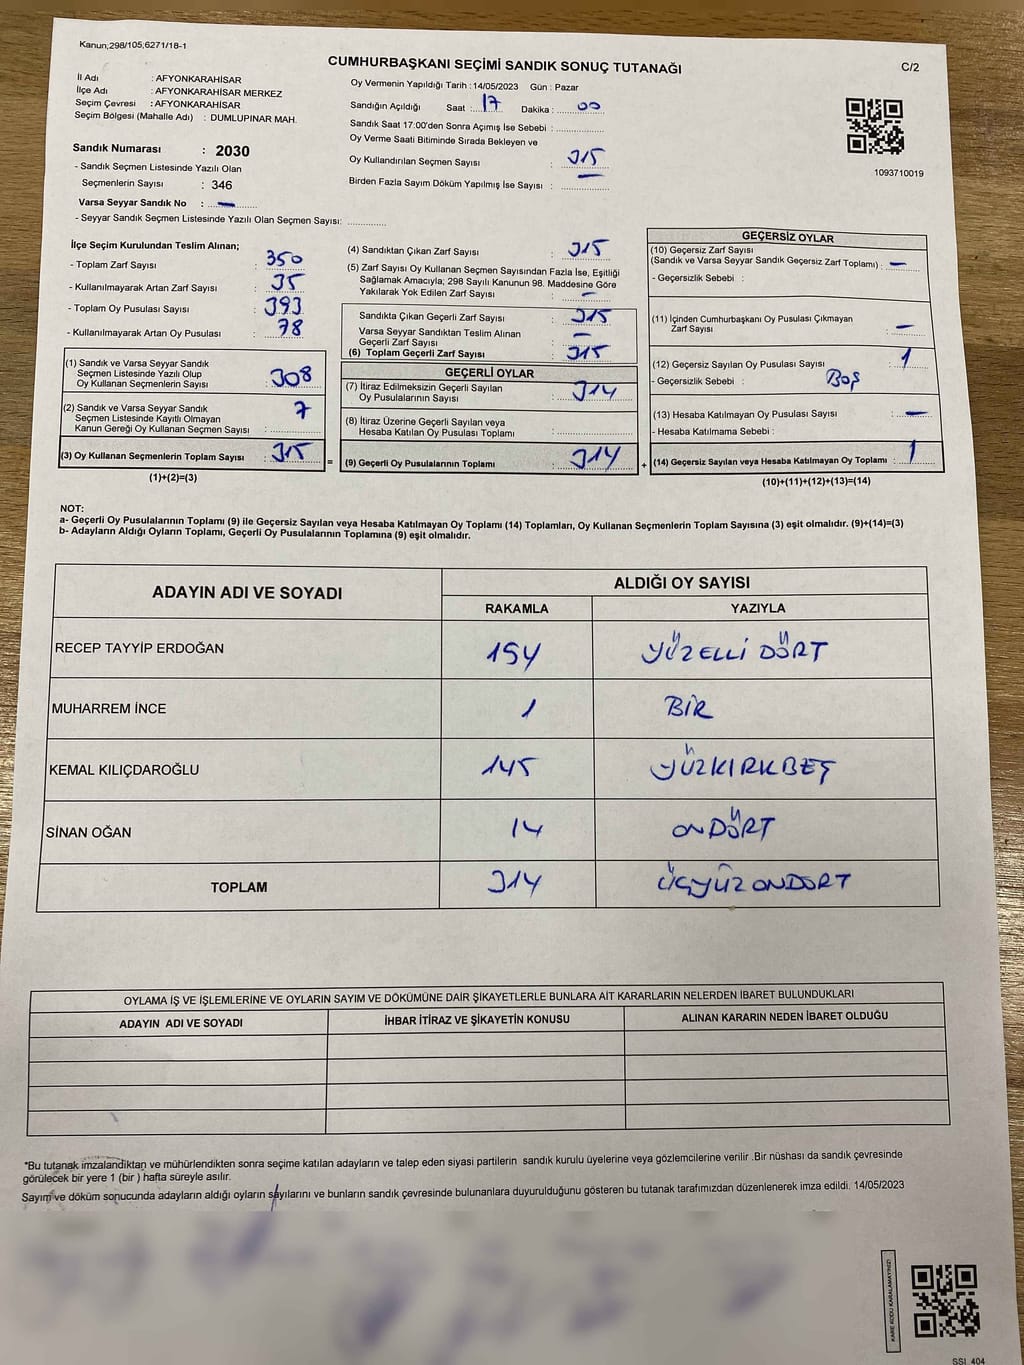 Kanun;298/105,6271/18-1
CUMHURBAŞKANI SEÇİMİ SANDIK SONUÇ TUTANAĞI
C/2
İl Adı : AFYONKARAHİSAR
İlçe Adı : AFYONKARAHİSAR MERKEZ
Seçim Çevresi : AFYONKARAHİSAR
Seçim Bölgesi (Mahalle Adı) : DUMLUPINAR MAH.
Sandık Numarası : 2030
- Sandık Seçmen Listesinde Yazılı Olan
Seçmenlerin Sayısı : 346
Varsa Seyyar Sandık No : —
- Seyyar Sandık Seçmen Listesinde Yazılı Olan Seçmen Sayısı: ............
Oy Vermenin Yapıldığı Tarih : 14/05/2023 Gün : Pazar
Sandığın Açıldığı Saat : 17 Dakika : 00
Sandık Saat 17:00'den Sonra Açımış İse Sebebi : ................
Oy Verme Saati Bitiminde Sırada Bekleyen ve
Oy Kullandırılan Seçmen Sayısı : 315
—
Birden Fazla Sayım Döküm Yapılmış İse Sayısı : ................
1093710019
İlçe Seçim Kurulundan Teslim Alınan;
- Toplam Zarf Sayısı : 350
- Kullanılmayarak Artan Zarf Sayısı : 35
- Toplam Oy Pusulası Sayısı : 393
- Kullanılmayarak Artan Oy Pusulası : 78
(1) Sandık ve Varsa Seyyar Sandık
Seçmen Listesinde Yazılı Olup
Oy Kullanan Seçmenlerin Sayısı : 308
(2) Sandık ve Varsa Seyyar Sandık
Seçmen Listesinde Kayıtlı Olmayan
Kanun Gereği Oy Kullanan Seçmen Sayısı : 7
(3) Oy Kullanan Seçmenlerin Toplam Sayısı : 315
(1)+(2)=(3)
(4) Sandıktan Çıkan Zarf Sayısı : 315
(5) Zarf Sayısı Oy Kullanan Seçmen Sayısından Fazla İse, Eşitliği
Sağlamak Amacıyla; 298 Sayılı Kanunun 98. Maddesine Göre
Yakılarak Yok Edilen Zarf Sayısı : —
Sandıkta Çıkan Geçerli Zarf Sayısı : 315
Varsa Seyyar Sandıktan Teslim Alınan
Geçerli Zarf Sayısı : —
(6) Toplam Geçerli Zarf Sayısı : 315
GEÇERLİ OYLAR
(7) İtiraz Edilmeksizin Geçerli Sayılan
Oy Pusulalarının Sayısı : 314
(8) İtiraz Üzerine Geçerli Sayılan veya
Hesaba Katılan Oy Pusulası Toplamı : ................
= (9) Geçerli Oy Pusulalarının Toplamı : 314 +
GEÇERSİZ OYLAR
(10) Geçersiz Zarf Sayısı
(Sandık ve Varsa Seyyar Sandık Geçersiz Zarf Toplamı) : —
- Geçersizlik Sebebi :
(11) İçinden Cumhurbaşkanı Oy Pusulası Çıkmayan
Zarf Sayısı : —
(12) Geçersiz Sayılan Oy Pusulası Sayısı : 1
- Geçersizlik Sebebi : Boş
(13) Hesaba Katılmayan Oy Pusulası Sayısı : —
- Hesaba Katılmama Sebebi :
(14) Geçersiz Sayılan veya Hesaba Katılmayan Oy Toplamı : 1
(10)+(11)+(12)+(13)=(14)
NOT:
a- Geçerli Oy Pusulalarının Toplamı (9) ile Geçersiz Sayılan veya Hesaba Katılmayan Oy Toplamı (14) Toplamları, Oy Kullanan Seçmenlerin Toplam Sayısına (3) eşit olmalıdır. (9)+(14)=(3)
b- Adayların Aldığı Oyların Toplamı, Geçerli Oy Pusulalarının Toplamına (9) eşit olmalıdır.
ADAYIN ADI VE SOYADI ALDIĞI OY SAYISI
RAKAMLA YAZIYLA
RECEP TAYYİP ERDOĞAN 154 YÜZELLİ DÖRT
MUHARREM İNCE 1 BİR
KEMAL KILIÇDAROĞLU 145 YÜZKIRKBEŞ
SİNAN OĞAN 14 ONDÖRT
TOPLAM 314 ÜÇYÜZONDORT
OYLAMA İŞ VE İŞLEMLERİNE VE OYLARIN SAYIM VE DÖKÜMÜNE DAİR ŞİKAYETLERLE BUNLARA AİT KARARLARIN NELERDEN İBARET BULUNDUKLARI
ADAYIN ADI VE SOYADI İHBAR İTİRAZ VE ŞİKAYETİN KONUSU ALINAN KARARIN NEDEN İBARET OLDUĞU
*Bu tutanak imzalandıktan ve mühürlendikten sonra seçime katılan adayların ve talep eden siyasi partilerin sandık kurulu üyelerine veya gözlemcilerine verilir .Bir nüshası da sandık çevresinde
görülecek bir yere 1 (bir ) hafta süreyle asılır.
Sayım ve döküm sonucunda adayların aldığı oyların sayılarını ve bunların sandık çevresinde bulunanlara duyurulduğunu gösteren bu tutanak tarafımızdan düzenlenerek imza edildi. 14/05/2023
KARE KODU KARALAMAYINIZ!
SSI 404